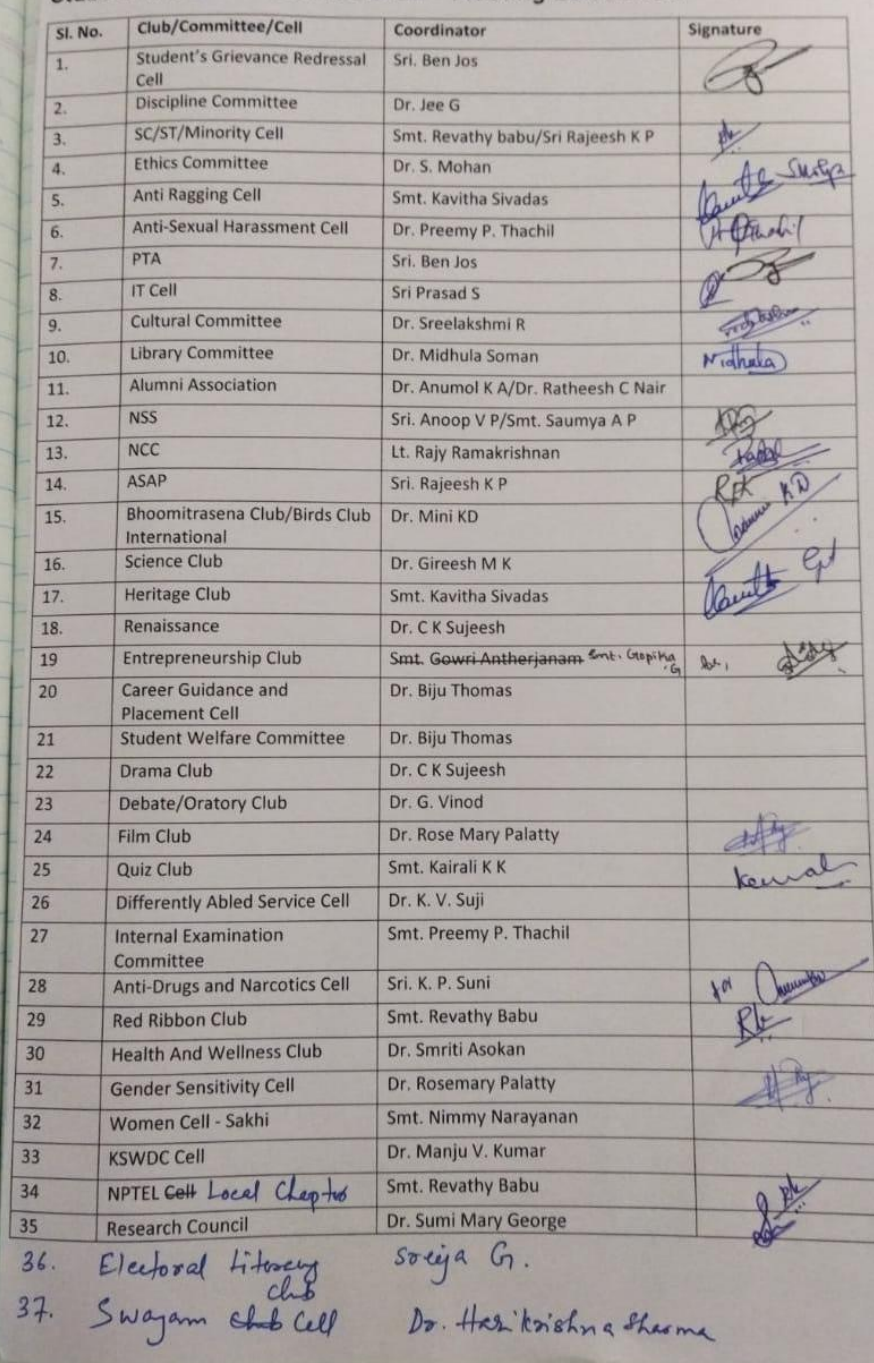 Sl. No. Club/Committee/Cell Coordinator Signature
1. Student's Grievance Redressal Sri. Ben Jos
Cell
2. Discipline Committee Dr. Jee G
3. SC/ST/Minority Cell Smt. Revathy babu/Sri Rajeesh K P
4. Ethics Committee Dr. S. Mohan
5. Anti Ragging Cell Smt. Kavitha Sivadas
6. Anti-Sexual Harassment Cell Dr. Preemy P. Thachil
7. PTA Sri. Ben Jos
8. IT Cell Sri Prasad S
9. Cultural Committee Dr. Sreelakshmi R
10. Library Committee Dr. Midhula Soman Midhula
11. Alumni Association Dr. Anumol K A/Dr. Ratheesh C Nair
12. NSS Sri. Anoop V P/Smt. Saumya A P
13. NCC Lt. Rajy Ramakrishnan
14. ASAP Sri. Rajeesh K P
15. Bhoomitrasena Club/Birds Club Dr. Mini KD
International
16. Science Club Dr. Gireesh M K
17. Heritage Club Smt. Kavitha Sivadas
18. Renaissance Dr. C K Sujeesh
19 Entrepreneurship Club Smt. Gowri Antherjanam Smt. Gopika G
20 Career Guidance and Dr. Biju Thomas
Placement Cell
21 Student Welfare Committee Dr. Biju Thomas
22 Drama Club Dr. C K Sujeesh
23 Debate/Oratory Club Dr. G. Vinod
24 Film Club Dr. Rose Mary Palatty
25 Quiz Club Smt. Kairali K K
26 Differently Abled Service Cell Dr. K. V. Suji
27 Internal Examination Smt. Preemy P. Thachil
Committee
28 Anti-Drugs and Narcotics Cell Sri. K. P. Suni for
29 Red Ribbon Club Smt. Revathy Babu
30 Health And Wellness Club Dr. Smriti Asokan
31 Gender Sensitivity Cell Dr. Rosemary Palatty
32 Women Cell - Sakhi Smt. Nimmy Narayanan
33 KSWDC Cell Dr. Manju V. Kumar
34 NPTEL Cell Local Chapter Smt. Revathy Babu
35 Research Council Dr. Sumi Mary George
36. Electoral Literacy Sreeja G.
club
37. Swayam club Cell Dr. Harikrishna Sharma